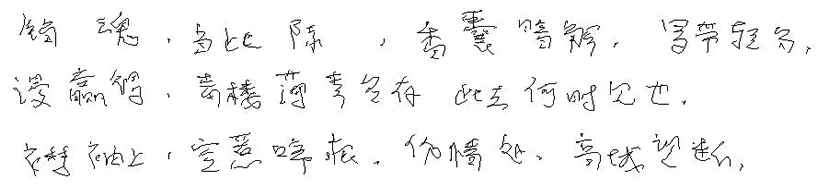 销魂,当此际,香囊暗解,罗带轻分,
漫赢得,青楼薄幸名存 此去何时见也.
襟袖上,空惹啼痕.伤情处,高城望断,